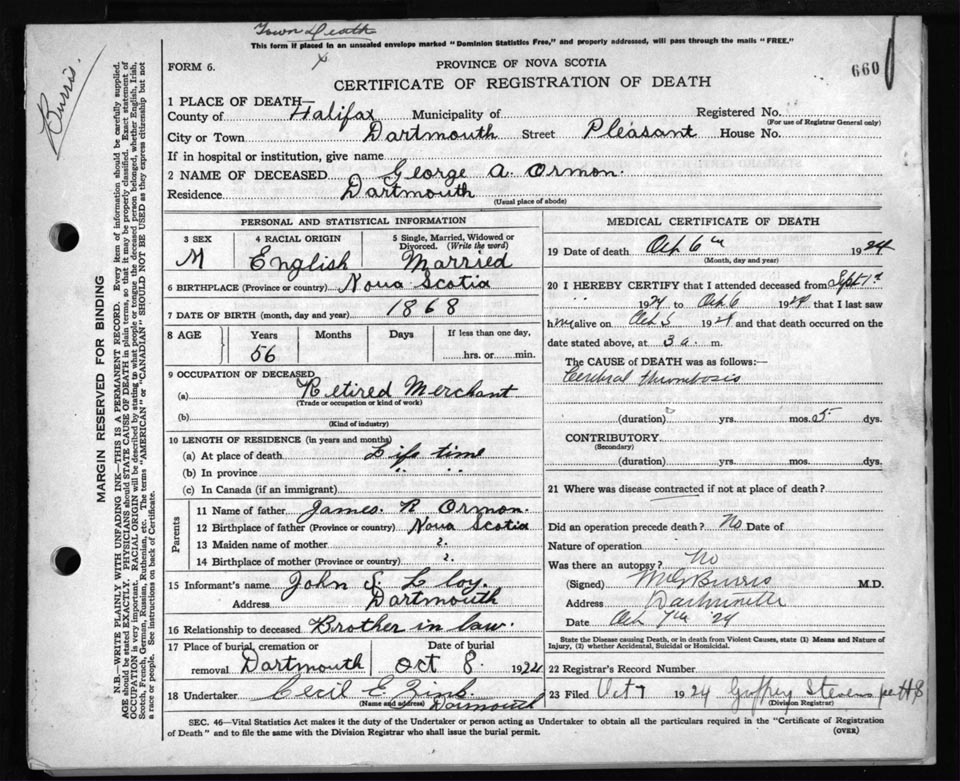 Town Death
This form if placed in an unsealed envelope marked "Dominion Statistics Free," and properly addressed, will pass through the mails "FREE."
x
Burris.
FORM 6.
PROVINCE OF NOVA SCOTIA
660
CERTIFICATE OF REGISTRATION OF DEATH
1 PLACE OF DEATH—
County of Halifax Municipality of Registered No.
(For use of Registrar General only)
City or Town Dartmouth Street Pleasant House No.
If in hospital or institution, give name
2 NAME OF DECEASED George A. Ormon.
Residence Dartmouth
(Usual place of abode)
PERSONAL AND STATISTICAL INFORMATION
3 SEX 4 RACIAL ORIGIN 5 Single, Married, Widowed or Divorced. (Write the word)
M English Married
6 BIRTHPLACE (Province or country) Nova Scotia
7 DATE OF BIRTH (month, day and year) 1868
8 AGE Years Months Days If less than one day,
56 hrs. or min.
9 OCCUPATION OF DECEASED
(a) Retired Merchant
(Trade or occupation or kind of work)
(b)
(Kind of industry)
10 LENGTH OF RESIDENCE (in years and months)
(a) At place of death Life time
(b) In province " "
(c) In Canada (if an immigrant)
Parents
11 Name of father James R Ormon.
12 Birthplace of father (Province or country) Nova Scotia
13 Maiden name of mother ?.
14 Birthplace of mother (Province or country) ?.
15 Informant's name John S.
Address Dartmouth
16 Relationship to deceased Brother in law.
17 Place of burial, cremation or Date of burial
removal Dartmouth Oct 8 1924
18 Undertaker Cecil E. Zink
(Name and address) Dartmouth
MEDICAL CERTIFICATE OF DEATH
19 Date of death Oct 6th 1924
(Month, day and year)
20 I HEREBY CERTIFY that I attended deceased from Sept 1st
" " 1924 to Oct 6 1924 that I last saw
him alive on Oct 5 1924 and that death occurred on the
date stated above, at 3 a. m.
The CAUSE of DEATH was as follows:—
Cerebral thrombosis
(duration) yrs. mos. 5 dys.
CONTRIBUTORY
(Secondary)
(duration) yrs. mos. dys.
21 Where was disease contracted if not at place of death?
Did an operation precede death? No Date of
Nature of operation
Was there an autopsy? No
(Signed) M G Burris M.D.
Address Dartmouth
Date Oct 7th '24
State the Disease causing Death, or in death from Violent Causes, state (1) Means and Nature of
Injury, (2) whether Accidental, Suicidal or Homicidal.
22 Registrar's Record Number
23 Filed Oct 7 1924 Godfrey Stevens per
(Division Registrar)
SEC. 46—Vital Statistics Act makes it the duty of the Undertaker or person acting as Undertaker to obtain all the particulars required in the "Certificate of Registration
of Death" and to file the same with the Division Registrar who shall issue the burial permit.
(OVER)
MARGIN RESERVED FOR BINDING
N.B.—WRITE PLAINLY WITH UNFADING INK—THIS IS A PERMANENT RECORD. Every item of information should be carefully supplied.
AGE should be stated EXACTLY. PHYSICIANS should STATE CAUSE OF DEATH in plain terms, so that it may be properly classified. Exact statement of
OCCUPATION is very important. RACIAL ORIGIN will be described by stating to what people or tongue the deceased person belonged, whether English, Irish,
Scotch, French, German, Russian, Ruthenian, etc. The terms "AMERICAN" or "CANADIAN" SHOULD NOT BE USED as they express citizenship but not
a race or people. See instructions on back of Certificate.